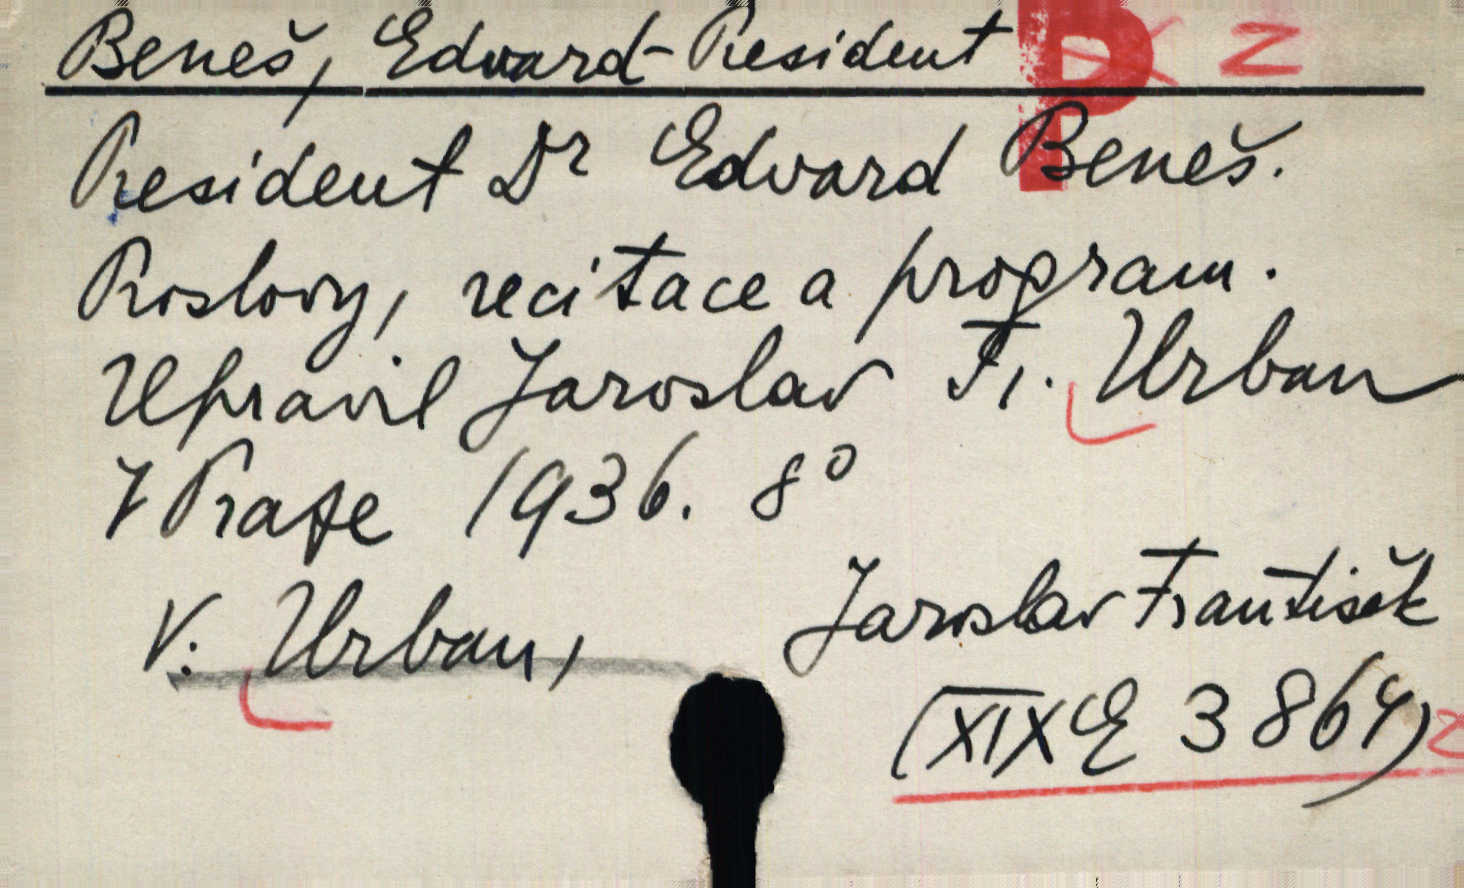 Beneš, Edvard - President P z
President Dr Edvard Beneš.
Proslovy, recitace a program.
Upravil Jaroslav Fr. Urban
V Praze 1936. 8°
V: Urban, Jaroslav František
(XIX E 3864) z